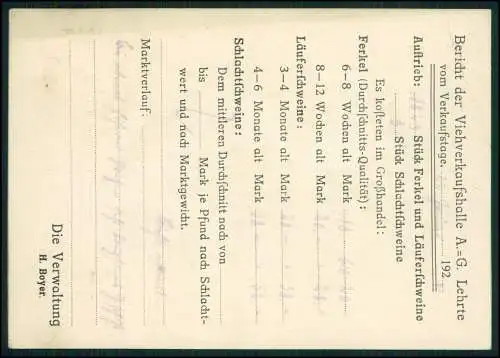 Bericht der Viehverkaufshalle A.=G. Lehrte
vom Verkaufstage. 192
Auftrieb: Stück Ferkel und Läuferschweine
Stück Schlachtschweine
Es kosteten im Großhandel:
Ferkel (Durchschnitts-Qualität):
6–8 Wochen alt Mark
8–12 Wochen alt Mark
Läuferschweine:
3–4 Monate alt Mark
4–6 Monate alt Mark
Schlachtschweine:
Dem mittleren Durchschnitt nach von
bis Mark je Pfund nach Schlacht-
wert und nach Marktgewicht.
Marktverlauf.
Die Verwaltung
H. Boyer.